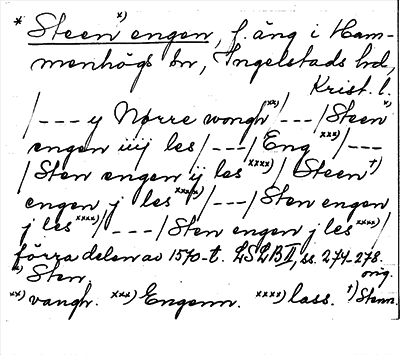 * Steen x) engen, f. äng i Ham-
menhögs sn, Ingelstads hd,
Krist. l.
/--- y Nørre wongh xx) /---/Steen x)
engen iiij les/---/Eng xxx) /---
/Sten engen ij les xxxx) / Steen †)
engen j les xxxx) /---/Sten engen
j les xxxx) /---/Sten engen j les xxxx) /
förra delen av 1570-t. LSLB II, ss. 274-278.
x) Sten. orig.
xx) vangh. xxx) Engenn. xxxx) lass. †) Stenn.